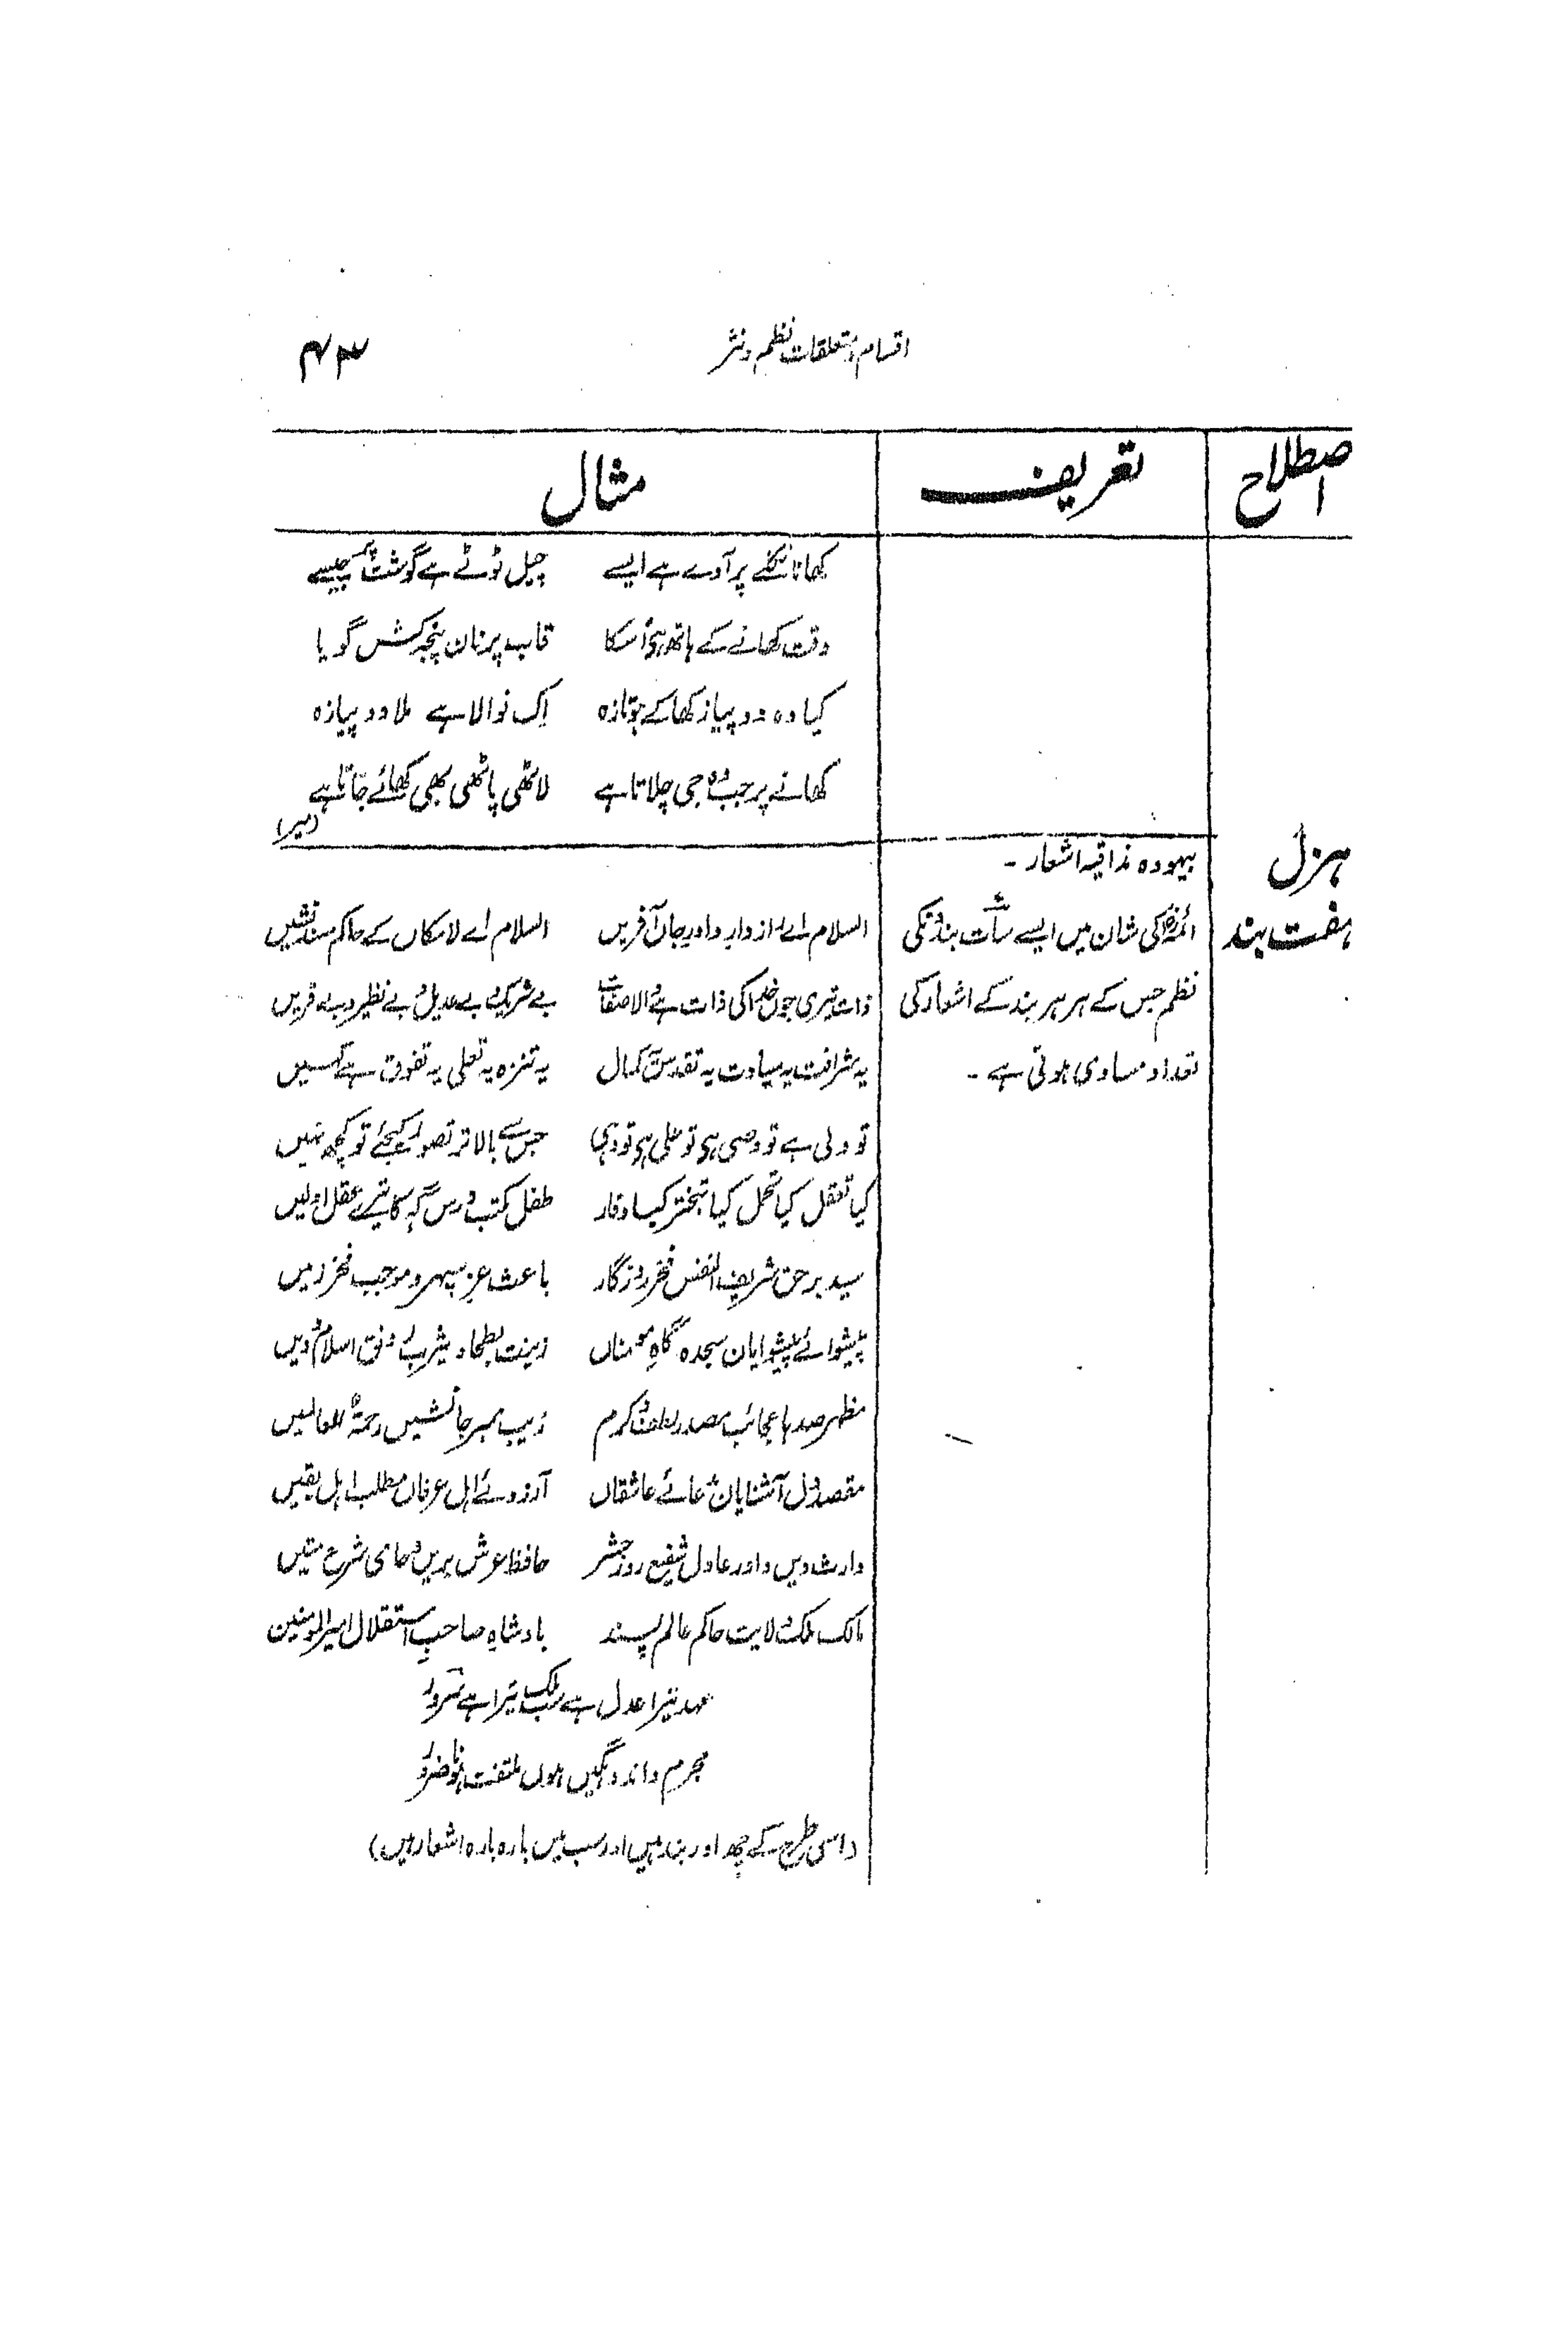 ۴۳
اقسام و متعلقات نظم و نثر
اصطلاح تعریف مثال
کھانا نکلنے پر آوے ہے ایسے چیل ٹوٹے ہے گوشت پر جیسے
وقت کھانے کے ہاتھ ہی اُسکا قاب پر نان پنجہ کش گویا
کیا وہ دو پیاز کھا کے ہو تازہ اِک نوالا ہے ملا دو پیازہ
کھانے پر جب وہ جی چلاتا ہے لاٹھی پاٹھی بھی کھائے جاتا ہے
(میر)
ہزل
بیہودہ مذاقیہ اشعار۔
ہفت بند
ائمہ کی شان میں ایسے سات بندونکی
نظم جس کے ہر ہر بند کے اشعار کی
تعداد مساوی ہوتی ہے۔
السلام اے رازدارِ داورِ جاں آفریں السلام اے لامکاں کے حاکم مسند نشیں
ذات تیری جوں خدا کی ذات ہے والا صفات بے شریک و بے عدیل و بے نظیر و بے قریں
یہ شرافت یہ سیادت یہ تقدس یہ کمال یہ تنزہ یہ تعلی یہ تفوق ہے کہیں
تو ولی ہے تو وصی ہی تو علی ہی تو وہی جس سے بالاتر تصور کیجئے تو کچھ نہیں
کیا تعقل کیا تحمل کیا تبختر کیا وقار طفل مکتب درس گہ کا تیرے عقل اولیں
سید برحق شریف النفس فخر روزگار باعث عز سپہر و موجب فخر زمیں
پیشوائے پیشوایان سجدہ گاہِ مومناں زینت بطحا و یثرب رونق اسلام و دیں
مظہر صدہا عجائب مصدر لطف و کرم زیب ممبر جانشیں رحمۃ للعالمیں
مقصد دل آشنایاں مدعائے عاشقاں آرزوئے اہل عرفاں مطلب اہل یقیں
وارث دیں داور عادل شفیع روز حشر حافظ عرش بریں و حامی شرع متیں
مالک ملک ولایت حاکم عالم پسند بادشاہِ صاحب استقلال امیر المومنین
عہد تیرا عدل ہے سب ملک تیرا ہے سرور
مجرم و اندوہگیں ہوں ملتفت ہونا ضرور
(اسی طرح کے چھ اور بند ہیں اور سب میں بارہ بارہ اشعار ہیں)